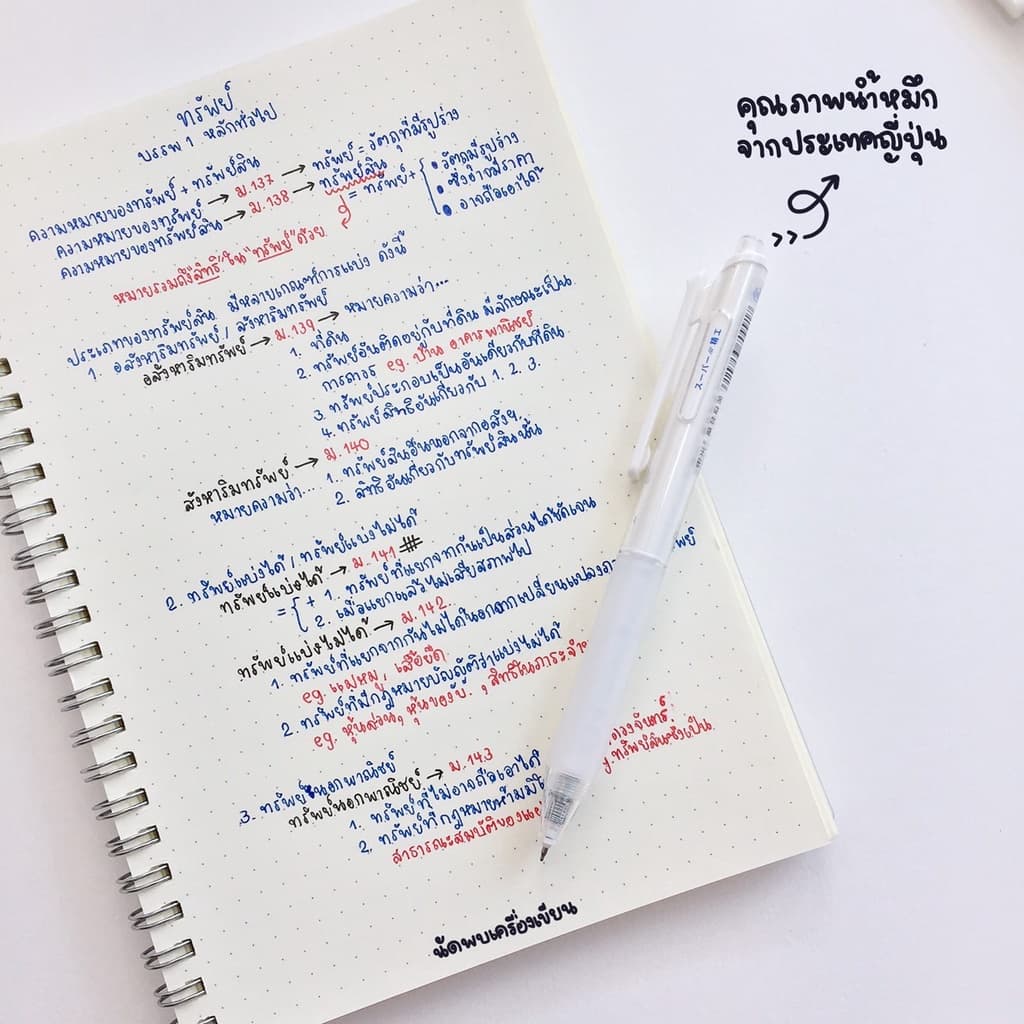 ทรัพย์
บรรพ 1 หลักทั่วไป
ความหมายของทรัพย์ + ทรัพย์สิน
ความหมายของทรัพย์ → ม.137 → ทรัพย์ = วัตถุที่มีรูปร่าง
ความหมายของทรัพย์สิน → ม.138 → ทรัพย์สิน = ทรัพย์ + { • วัตถุมีรูปร่าง
• ซึ่งอาจมีราคา
• อาจถือเอาได้
หมายรวมถึง "สิทธิ" ใน "ทรัพย์" ด้วย
ประเภทของทรัพย์สิน มีหลายเกณฑ์การแบ่ง ดังนี้
1. อสังหาริมทรัพย์ / สังหาริมทรัพย์
อสังหาริมทรัพย์ → ม.139 → หมายความว่า...
1. ที่ดิน
2. ทรัพย์อันติดอยู่กับที่ดิน มีลักษณะเป็น
การถาวร eg. บ้าน อาคารพานิชย์
3. ทรัพย์ประกอบเป็นอันเดียวกับที่ดิน
4. ทรัพย์สิทธิอันเกี่ยวกับ 1. 2. 3.
สังหาริมทรัพย์ → ม.140
หมายความว่า... 1. ทรัพย์สินอื่นนอกจากอสังหฯ
2. สิทธิอันเกี่ยวกับทรัพย์สินนั้น
2. ทรัพย์แบ่งได้ / ทรัพย์แบ่งไม่ได้
ทรัพย์แบ่งได้ → ม.141 #
= { + 1. ทรัพย์ที่แยกจากกันเป็นส่วนได้ชัดเจน
2. เมื่อแยกแล้วไม่เสียสภาพไป
ทรัพย์แบ่งไม่ได้ → ม.142
1. ทรัพย์ที่แยกจากกันไม่ได้นอกจากเปลี่ยนแปลง ทรัพย์
eg. แมงหมู, เสื้อยืด
2. ทรัพย์ที่มีกฎหมายบัญญัติว่าแบ่งไม่ได้
eg. หุ้นส่วน, หุ้นของบ., สิทธิในภาระจำ
3. ทรัพย์นอกพาณิชย์
ทรัพย์นอกพาณิชย์ → ม.143
1. ทรัพย์ที่ไม่อาจถือเอาได้ ดวงจันทร์
2. ทรัพย์ที่กฎหมายห้ามมิ ทรัพย์สินซึ่งเป็น
สาธารณะสมบัติของแผ่
นัดพบเครื่องเขียน
คุณภาพน้ำหมึก
จากประเทศญี่ปุ่น